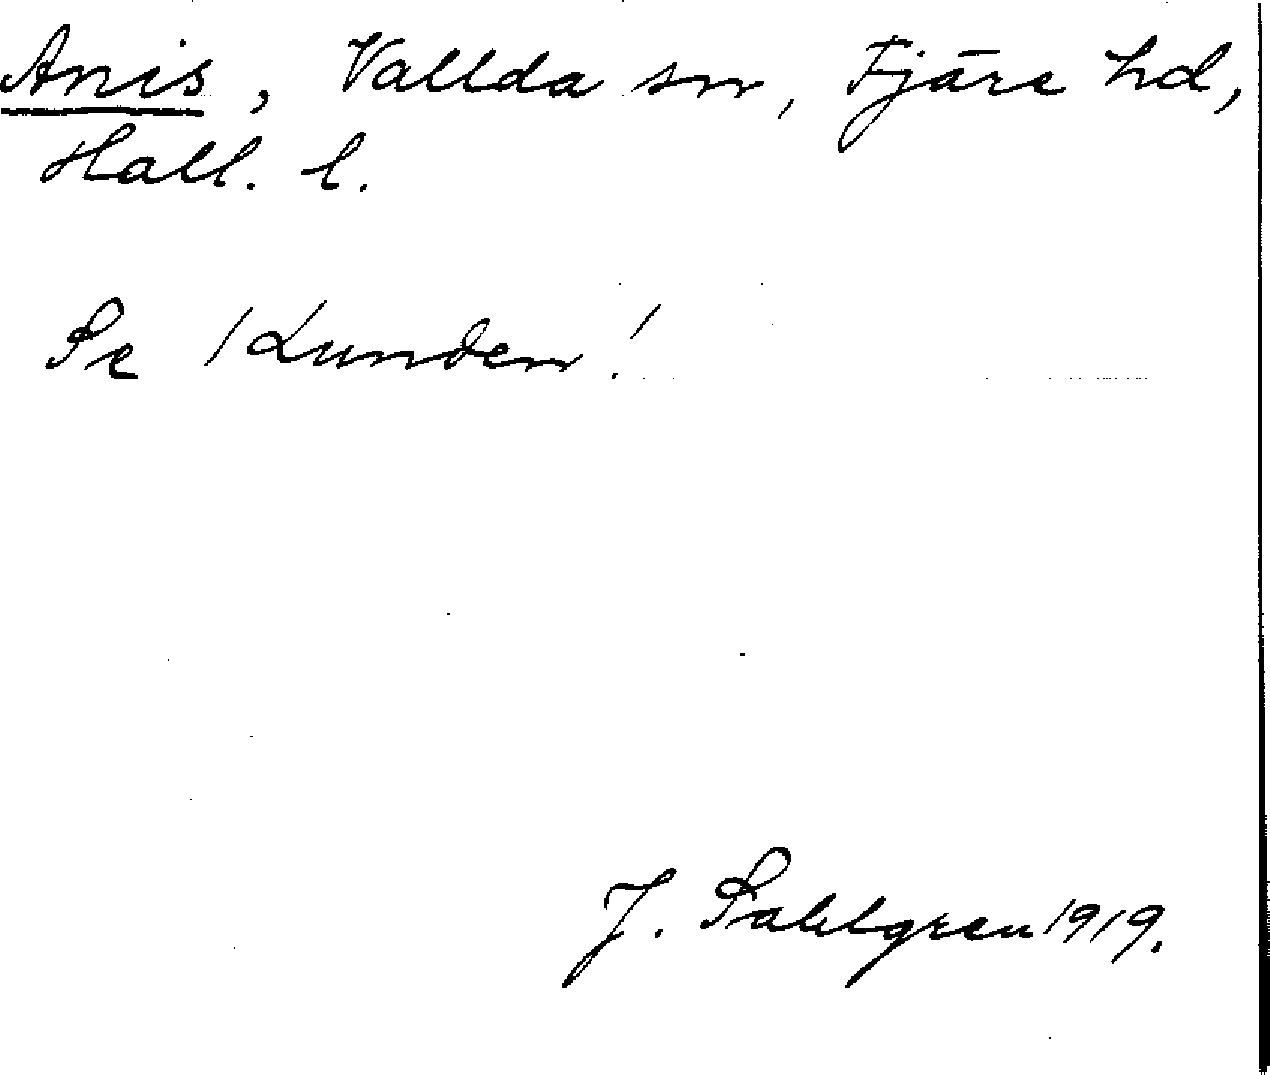 Anis, Vallda sn, Fjäre hd,
Hall. l.
Se /Lunden!/
J. Sahlgren 1919.